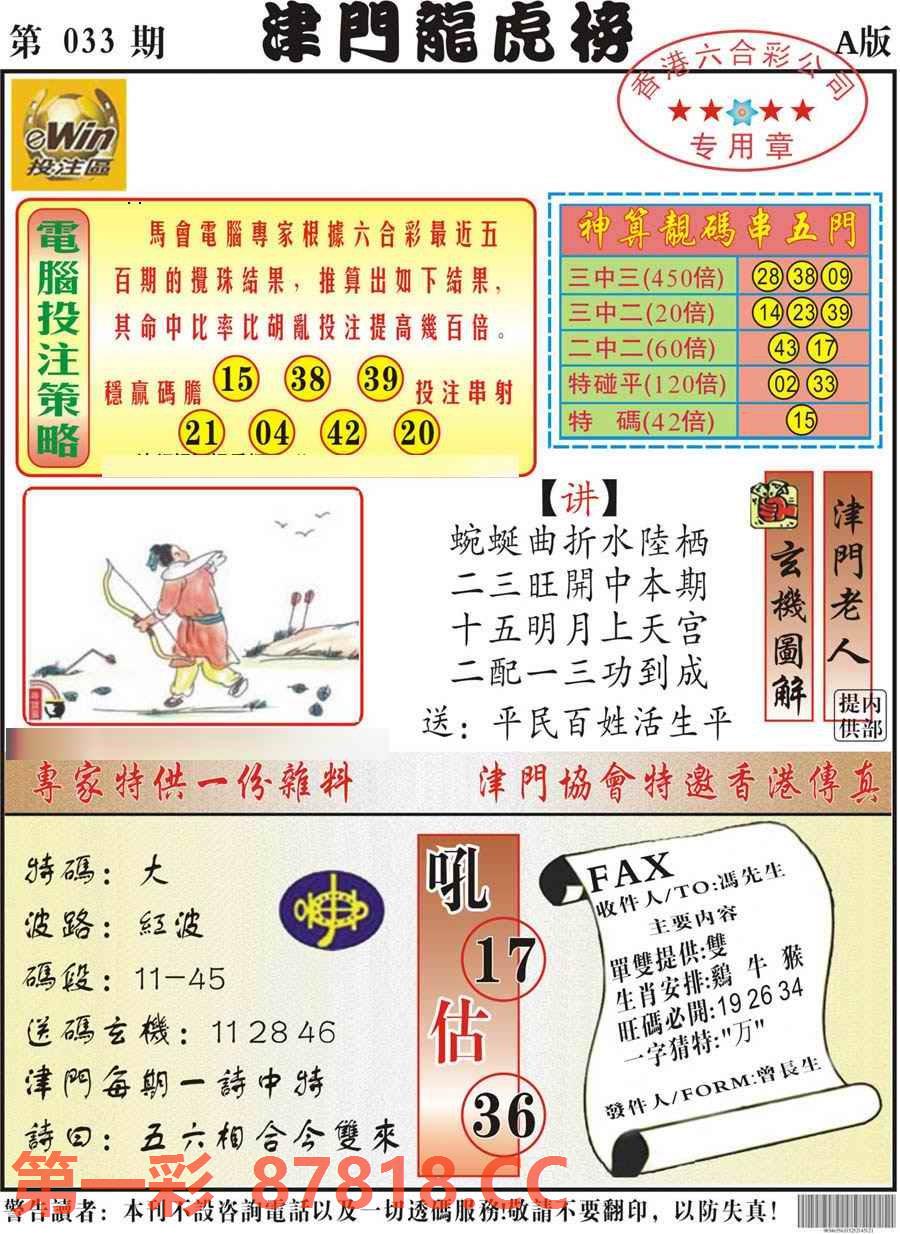 第 033 期
津門龍虎榜
A版
香港六合彩公司
专用章
eWin
投注區
電腦投注策略
馬會電腦專家根據六合彩最近五
百期的攪珠結果，推算出如下結果，
其命中比率比胡亂投注提高幾百倍。
穩贏碼膽 15 38 39 投注串射
21 04 42 20
神算靚碼串五門
三中三(450倍) 28 38 09
三中二(20倍) 14 23 39
二中二(60倍) 43 17
特碰平(120倍) 02 33
特 碼(42倍) 15
【讲】
蜿蜒曲折水陸栖
二三旺開中本期
十五明月上天宫
二配一三功到成
送：平民百姓活生平
玄機圖解
津門老人
内部提供
專家特供一份雜料
津門協會特邀香港傳真
特碼：大
波路：紅波
碼段：11-45
送碼玄機：11 28 46
津門每期一詩中特
詩曰：五六相合今雙來
吼
17
估
36
FAX
收件人/TO:馮先生
主要内容
單雙提供:雙
生肖安排:鷄 牛 猴
旺碼必開:19 26 34
一字猜特:"万"
發件人/FORM:曾長生
第一彩 87818.CC
警告讀者：本刊不設咨詢電話以及一切透碼服務!敬請不要翻印，以防失真!